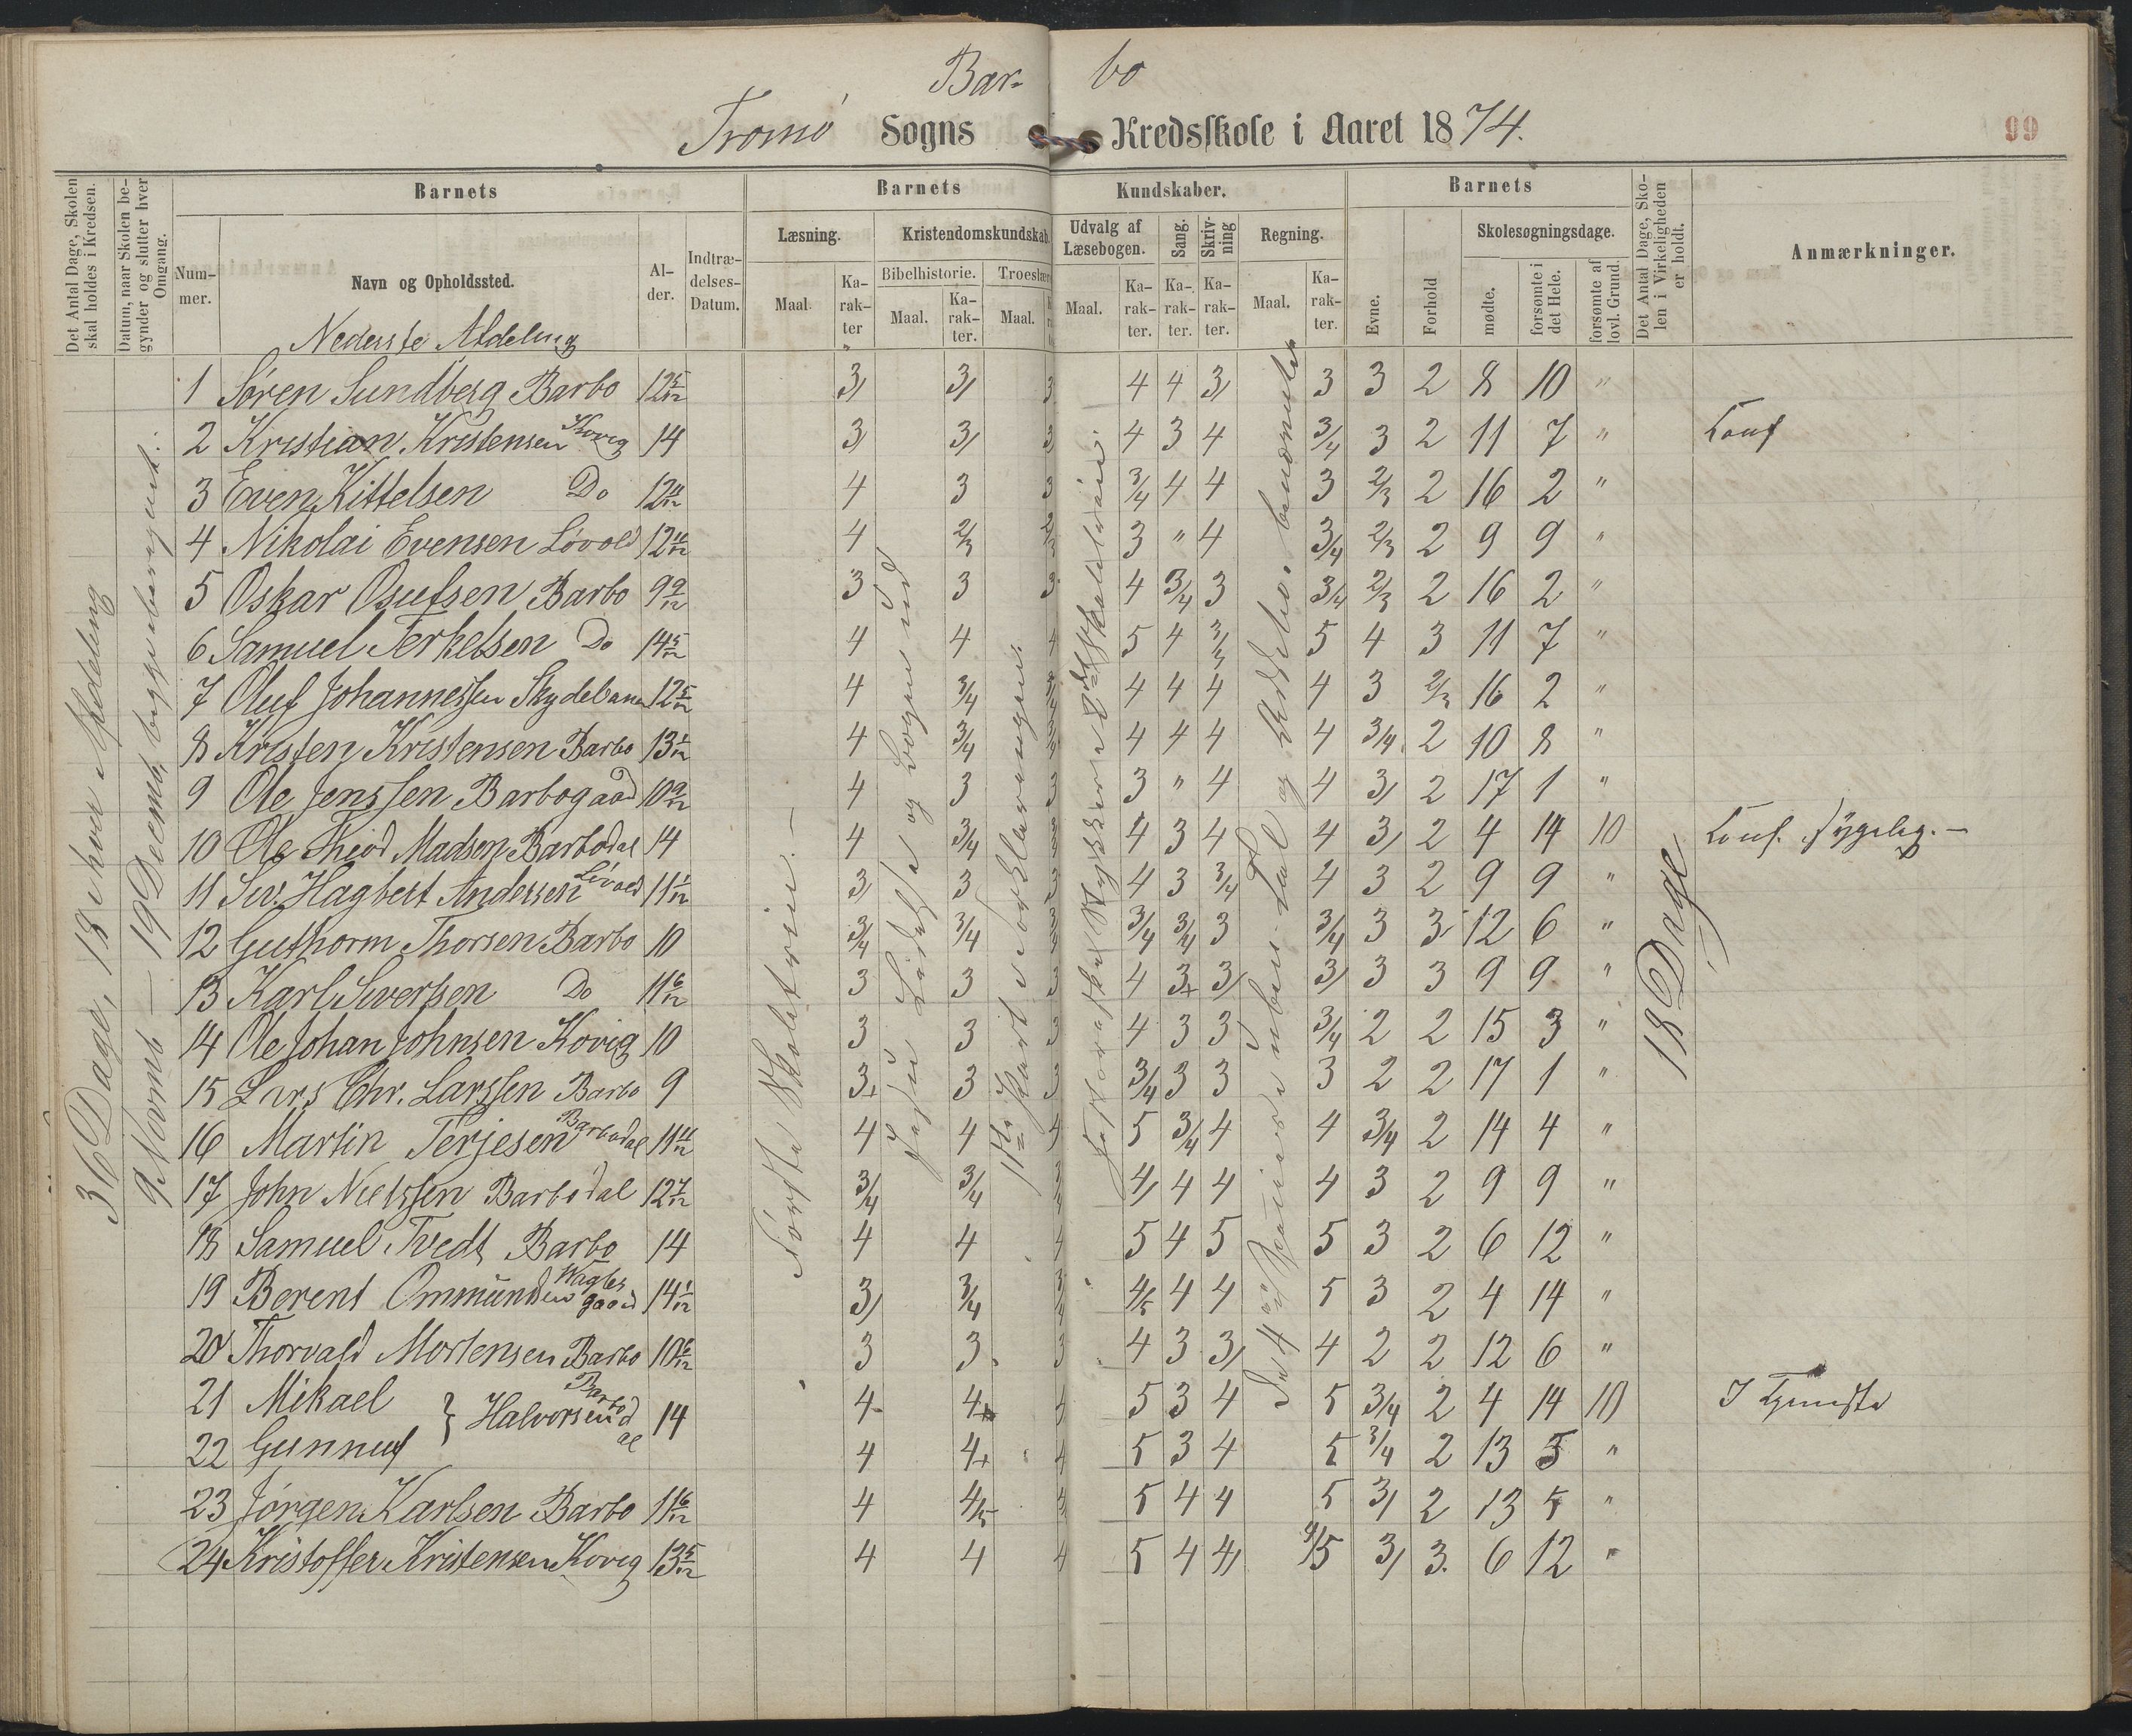 Bar- bo
Tromø Sogns Kredsskole i Aaret 1874.
99
Det Antal Dage, Skolen skal holdes i Kredsen.
Datum, naar Skolen begynder og slutter hver Omgang.
Barnets
Barnets Kundskaber.
Barnets
Det Antal Dage, Skolen i Virkeligheden er holdt.
Anmærkninger.
Nummer.
Navn og Opholdssted.
Alder.
Indtrædelses-Datum.
Læsning.
Kristendomskundskab.
Udvalg af Læsebogen.
Sang.
Skrivning
Regning.
Evne.
Forhold
Skolesøgningsdage.
Bibelhistorie.
Troeslære
Maal.
Karakter
Maal.
Karakter.
Maal.
Maal.
Karakter.
Karakter.
Karakter.
Maal.
Karakter.
mødte.
forsømte i det Hele.
forsømte af lovl. Grund.
Nederste Afdeling
36 Dage, 18 i hver Afdeling
9 Novemb – 19 Decemb.
Første Skoletrin. –
18 Dage
1 Søren Sundberg Barbo 12 5/12 3/ 3/ 3 4 4 3/ 3 3 2 8 10 "
2 Kristian Kristensen Kovig 14 3/ 3/ 3 4 3 4 3/4 3 2 11 7 " Conf
3 Even Kittelsen Do 12 11/12 4 3 3 3/4 4 4 3 2/3 2 16 2 "
4 Nikolai Evensen Løvold 12 11/12 4 2/3 2/3 3 " 4 3/4 2/3 2 9 9 "
5 Oskar Osufsen Barbo 9 9/12 3 3 3 4 3/4 3 3/4 2/3 2 16 2 "
6 Samuel Terkelsen Do 14 5/12 4 4 4 5 4 3/3 5 4 3 11 7 "
7 Oluf Johannessen Skydebanen 12 5/12 4 3/4 3/4 4 4 4 4 3 2/3 16 2 "
8 Kristen Kristensen Barbo 13 1/12 4 3/4 3/4 4 4 4 4 3/4 2 10 8 "
9 Ole Jenssen Barbogaard 10 9/12 4 3 3 3 " 4 4 3/ 2 17 1 "
10 Ole Theod Madsen Barbodal 14 4 3/4 3/4 4 3 4 4 3/ 2 4 14 10 Conf. sygelig. –
11 Siv. Hagbert Andersen Løvold 11 1/12 3/ 3 3 4 3 3/4 4 3 2 9 9 "
12 Guthorm Thorsen Barbo 10 3/4 3/4 3/4 3/4 3/4 3 3/4 3 3 12 6 "
13 Karl Siversen Do 11 6/12 3 3 3 4 3+ 3/ 3/ 3 3 9 9 "
14 Ole Johan Johnsen Kovig 10 3 3 3 4 3 3 3/4 2 2 15 3 "
15 Lars Chr. Larssen Barbo 9 3+ 3 3 3/4 3 3 3 2 2 17 1 "
16 Martin Terjesen Barbodal 11 11/12 4 4 4 5 3/4 4 4 3/4 2 14 4 "
17 John Nielssen Barbodal 12 7/12 3/4 3/4 3/4 4/ 4 4 4 3 2 9 9 "
18 Samuel Tvedt Barbo 14 4 4 4 5 4 5 5 3 2 6 12 "
19 Berent Ommundsen Waglesgaard 14 1/12 3/ 3/4 3/4 4/5 4 4 5 3 2 4 14 "
20 Thorvald Mortensen Barbo 10 6/12 3 3 3 4 3 3/ 4 2 2 12 6 "
21 Mikael } Halvorsen Barbodal 14 4 4+ 4 5 3 4 5 3/4 2 4 14 10 I Tjeneste
22 Gunnuf 4 4+ 4 5 3 4 5 3/4 2 13 5 "
23 Jørgen Karlsen Barbo 11 6/12 4 4/5 4 5 4 4 5 3/ 2 13 5 "
24 Kristoffer Kristensen Kovig 13 5/12 4 4 4 5 4 4/ 4/5 3/ 3 6 12 "